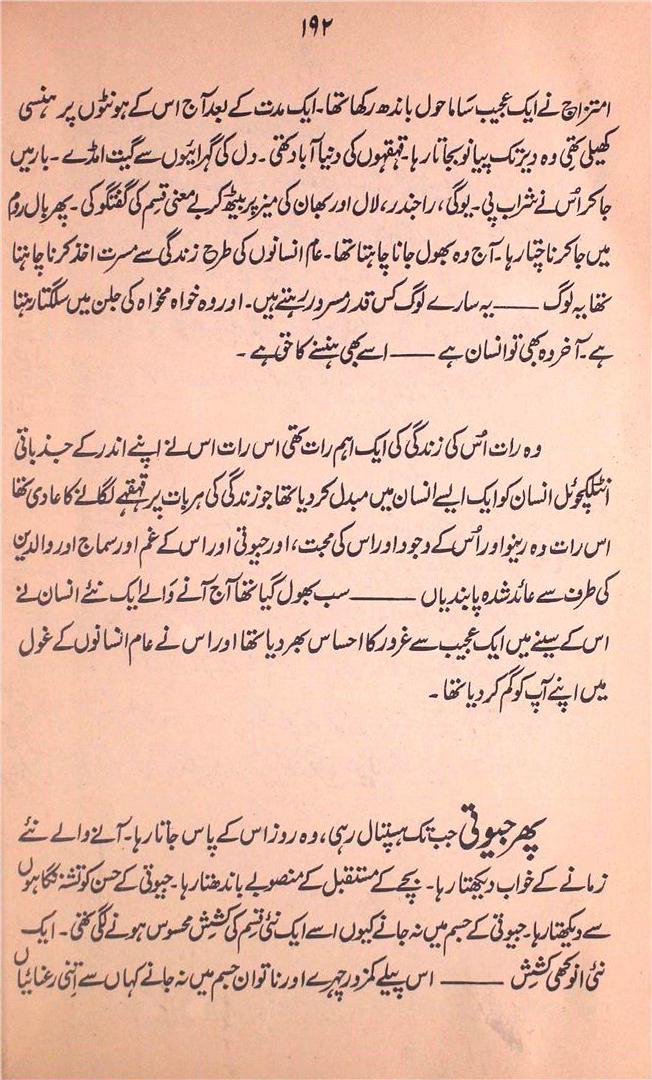 ۱۹۲
امتزاج نے ایک عجیب سا ماحول باندھ رکھا تھا۔ ایک مدت کے بعد آج اس کے ہونٹوں پر ہنسی
کھیلی تھی وہ دیر تک پیانو بجاتا رہا۔ قہقہوں کی دنیا آباد تھی۔ دل کی گہرائیوں سے گیت امڈے۔ بار میں
جا کر اُس نے شراب پی۔ یوگی، راجندر، لال اور بھان کی میز پر بیٹھ کر بے معنی قسم کی گفتگو کی۔ پھر بال روم
میں جا کر ناچتا رہا۔ آج وہ بھول جانا چاہتا تھا۔ عام انسانوں کی طرح زندگی سے مسرت اخذ کرنا چاہتا
تھا یہ لوگ —— یہ سارے لوگ کس قدر مسرور رہتے ہیں۔ اور وہ خواہ مخواہ کی جلن میں سلگتا رہتا
ہے۔ آخر وہ بھی تو انسان ہے —— اسے بھی ہنسنے کا حق ہے۔
وہ رات اُس کی زندگی کی ایک اہم رات تھی اس رات اس نے اپنے اندر کے جذباتی
انٹلکچوئل انسان کو ایک ایسے انسان میں مبدل کر دیا تھا جو زندگی کی ہر بات پر قہقہے لگانے کا عادی تھا
اس رات وہ رینو اور اُس کے وجود اور اس کی محبت، اور جیوتی اور اس کے غم اور سماج اور والدین
کی طرف سے عائد شدہ پابندیاں ——— سب بھول گیا تھا آج آنے والے ایک نئے انسان نے
اس کے سینے میں ایک عجیب سے غرور کا احساس بھر دیا تھا اور اس نے عام انسانوں کے غول
میں اپنے آپ کو گم کر دیا تھا۔
پھر جیوتی جب تک ہسپتال رہی، وہ روز اس کے پاس جاتا رہا۔ آنے والے نئے
زمانے کے خواب دیکھتا رہا۔ بچے کے مستقبل کے منصوبے باندھتا رہا۔ جیوتی کے حسن کو تشنہ نگاہوں
سے دیکھتا رہا۔ جیوتی کے جسم میں نہ جانے کیوں اسے ایک نئی قسم کی کشش محسوس ہونے لگی تھی۔ ایک
نئی انوکھی کشش ——— اس پیلے کمزور چہرے اور ناتواں جسم میں نہ جانے کہاں سے اتنی رعنائیاں